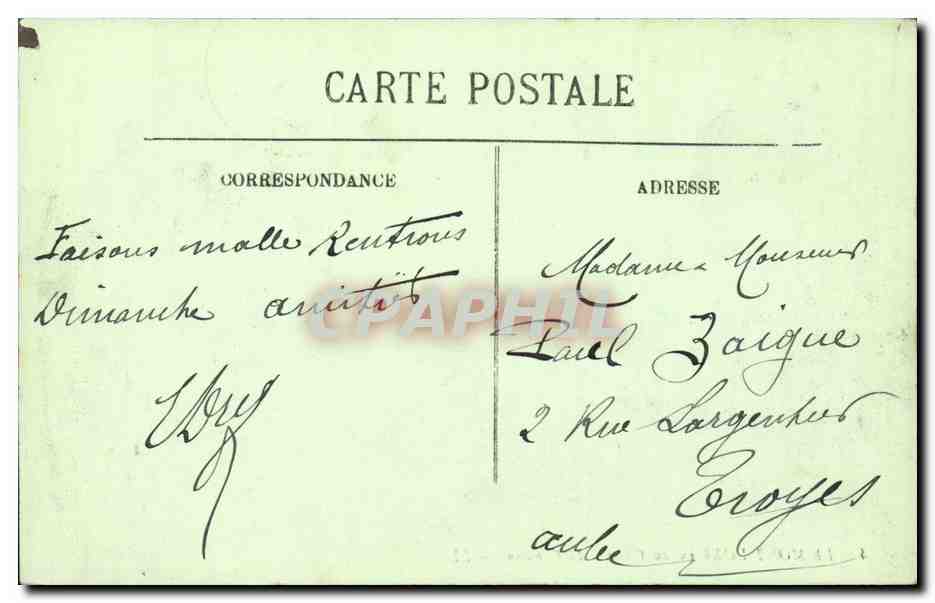 CARTE POSTALE
CORRESPONDANCE
Faisons malle Rentrons
Dimanche amitiés
ADRESSE
Madame & Monsieur
Paul Zaigue
2 Rue Largentier
Troyes
aube
CPAPHIL